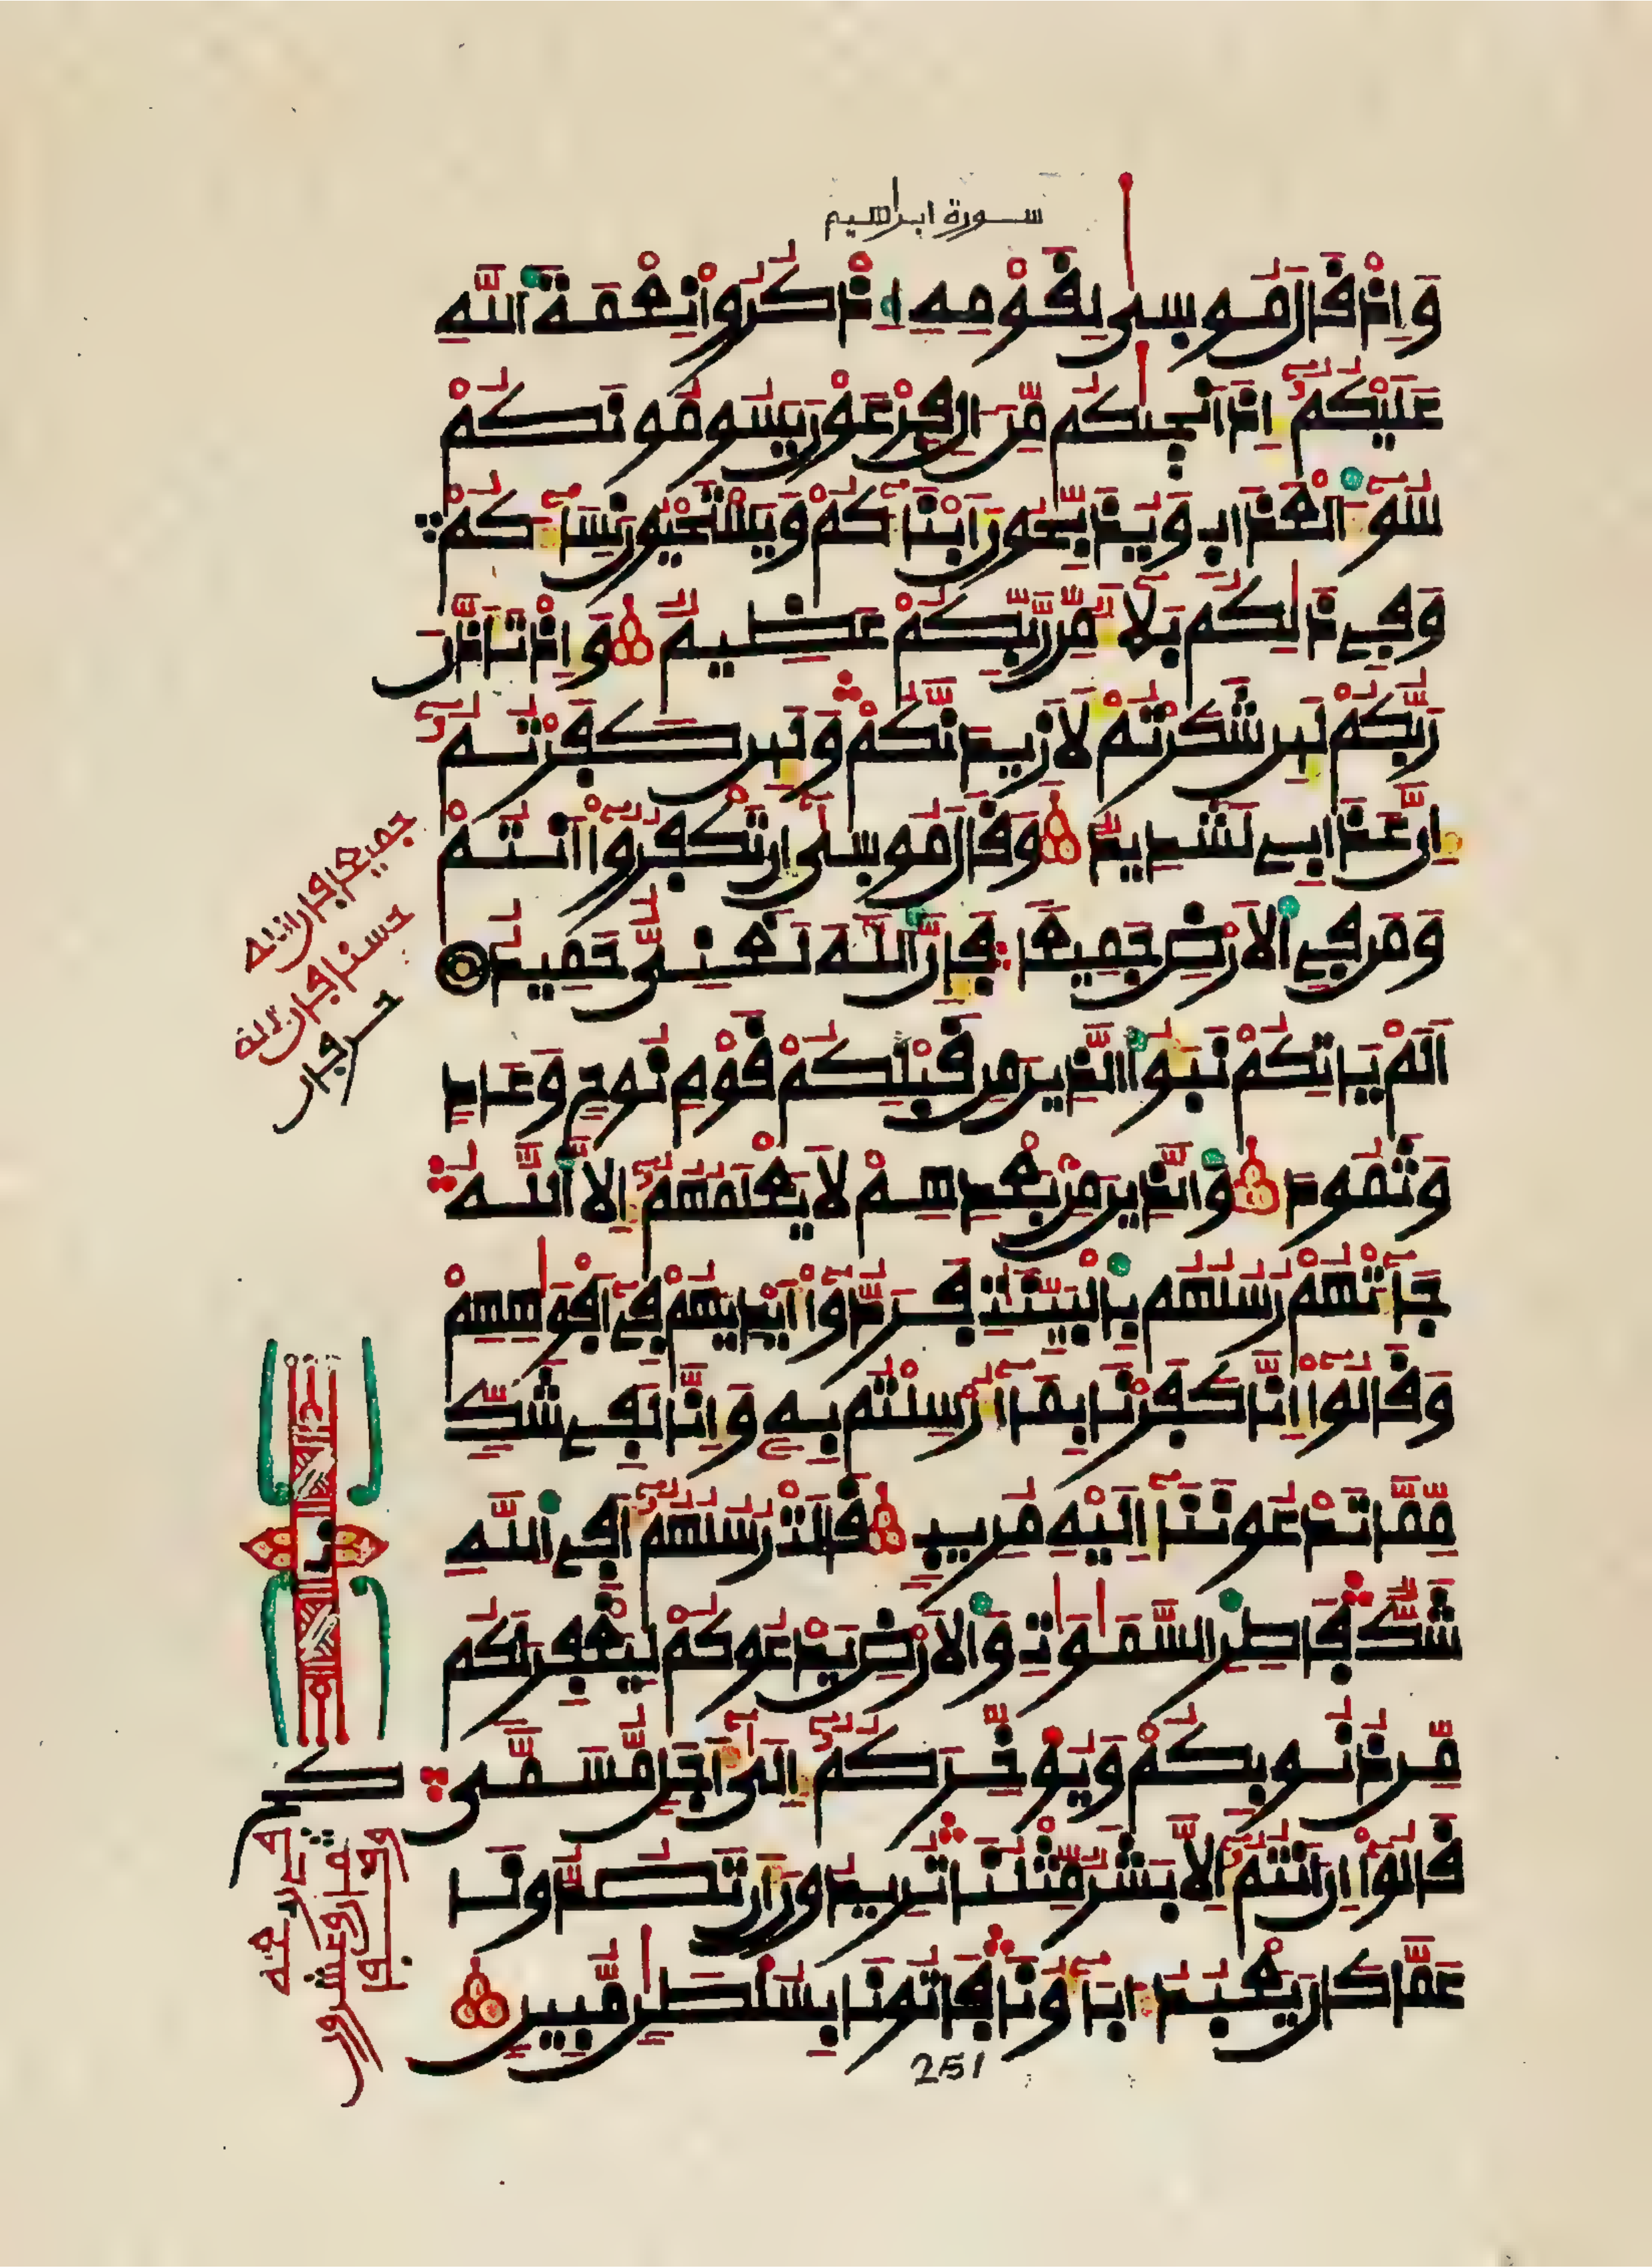 سورة ابراهيم
وَإِذْ قَالَ مُوسٜى لِقَوْمِهِ اِ۟ذْكُرُواْ نِعْمَةَ اَ۬للَّهِ
عَلَيْكُمُۥٓ إِذَ اَنجٜيٰكُم مِّنَ اٰلِ فِرْعَوْنَ يَسُومُونَكُمْ
سُوٓءَ اَ۬لْعَذَابِ وَيُذَبِّحُونَ أَبْنَآءَكُمْ وَيَسْتَحْيُونَ نِسَآءَكُمْ
وَفِے ذَٰلِكُم بَلَآءٌ مِّن رَّبِّكُمْ عَظِيمٌ وَإِذْ تَأَذَّنَ
رَبُّكُمْ لَئِن شَكَرْتُمْ لَأَزِيدَنَّكُمْ وَلَئِن كَفَرْتُمُۥٓ
إِنَّ عَذَابِے لَشَدِيدٌ وَقَالَ مُوسٜىٓ إِن تَكْفُرُوٓاْ أَنتُمْ
وَمَن فِے اِ۬لْأَرْضِ جَمِيعاً فَإِنَّ اَ۬للَّهَ لَغَنِىٌّ حَمِيدٌ
أَلَمْ يَأْتِكُمْ نَبَؤُاْ اُ۬لذِينَ مِن قَبْلِكُمْ قَوْمِ نُوحٍ وَعَادٍ
وَثَمُودَ وَالذِينَ مِنۢ بَعْدِهِمْ لَا يَعْلَمُهُمُۥٓ إِلَّا اَ۬للَّهُ
جَآءَتْهُمْ رُسُلُهُم بِالْبَيِّنَٰتِ فَرَدُّوٓاْ أَيْدِيَهُمْ فِےٓ أَفْوَٰهِهِمْ
وَقَالُوٓاْ إِنَّا كَفَرْنَا بِمَآ أُرْسِلْتُم بِهِۦ وَإِنَّا لَفِے شَكٍّ
مِّمَّا تَدْعُونَنَآ إِلَيْهِ مُرِيبٍ قَالَتْ رُسُلُهُمُۥٓ أَفِے اِ۬للَّهِ
شَكٌّ فَاطِرِ اِ۬لسَّمَٰوَٰتِ وَالْأَرْضِ يَدْعُوكُمْ لِيَغْفِرَ لَكُم
مِّن ذُنُوبِكُمْ وَيُوَخِّرَكُمُۥٓ إِلَىٰٓ أَجَلٍ مُّسَمّىً
قَالُوٓاْ إِنَ اَنتُمُۥٓ إِلَّا بَشَرٌ مِّثْلُنَا تُرِيدُونَ أَن تَصُدُّونَا
عَمَّا كَانَ يَعْبُدُ ءَابَآؤُنَا فَاتُونَا بِسُلْطَٰنٍ مُّبِينٍ
251
جميعا فإن الله
حسنا فإن الله
حرفان
حزب
كم